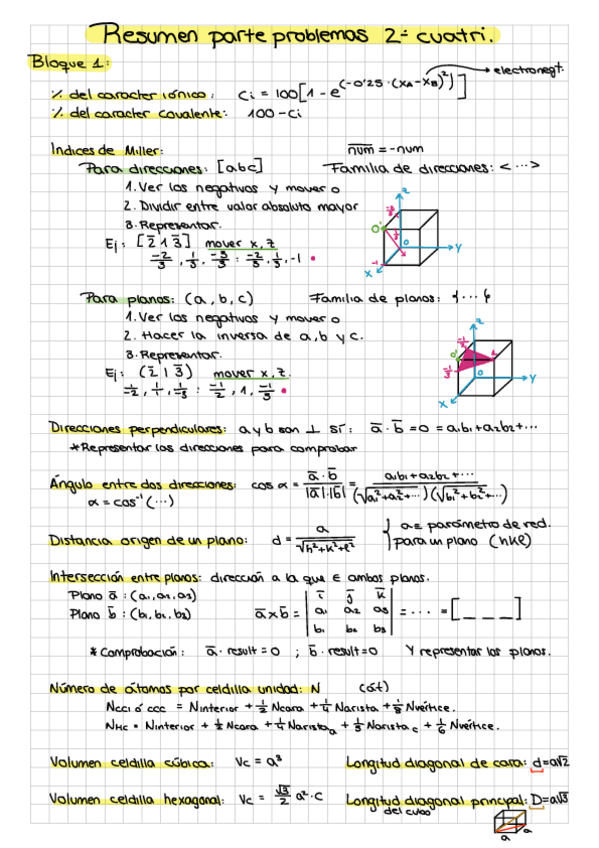 Resumen parte problemas 2º cuatri.
Bloque 1:
% del caracter iónico: Ci = 100[1 - e^(-0'25·(XA-XB)²)] → electronegt.
% del caracter covalente: 100-Ci
Indices de Miller: n̅u̅m̅ = -num
Para direcciones: [abc] Familia de direcciones: <···>
1. Ver los negativos y mover o
2. Dividir entre valor absoluto mayor
3. Representar.
Ej: [2̅ 1 3̅] mover x, z
-2/3, 1/3, -3/3 : -2/3, 1/3, -1
Para planos: (a, b, c) Familia de planos: {···}
1. Ver los negativos y mover o
2. Hacer la inversa de a, b y c.
3. Representar.
Ej: (2̅ 1 3̅) mover x, z.
1/-2, 1/1, 1/-3 : -1/2, 1, -1/3
Direcciones perpendiculares: a y b son ⊥ sí: a̅·b̅ = 0 = a1b1+a2b2+···
*Representar las direcciones para comprobar
Ángulo entre dos direcciones: cos α = a̅·b̅ / |a̅|·|b̅| = a1b1+a2b2+··· / (√a1²+a2²+···)(√b1²+b2²+···)
α = cos⁻¹(···)
Distancia origen de un plano: d = a / √h²+k²+l² { a = parámetro de red.
para un plano (hkl)
Intersección entre planos: dirección a la que ∈ ambos planos.
Plano a̅: (a1, a2, a3)
Plano b̅: (b1, b2, b3)
a̅ x b̅ = | i̅ j̅ k̅ |
| a1 a2 a3 | = ··· = [_ _ _]
| b1 b2 b3 |
*Comprobación: a̅· result = 0 ; b̅· result = 0 Y representar los planos.
Número de átomos por celdilla unidad: N (át)
Ncci ó ccc = Ninterior + 1/2 Ncara + 1/4 Narista + 1/8 Nvértice.
NHC = Ninterior + 1/2 Ncara + 1/4 Narista a + 1/3 Narista c + 1/6 Nvértice.
Volumen celdilla cúbica: Vc = a³ Longitud diagonal de cara: d=a√2
Volumen celdilla hexagonal: Vc = √3/2 a²·c Longitud diagonal principal: D=a√3
del cubo
a a